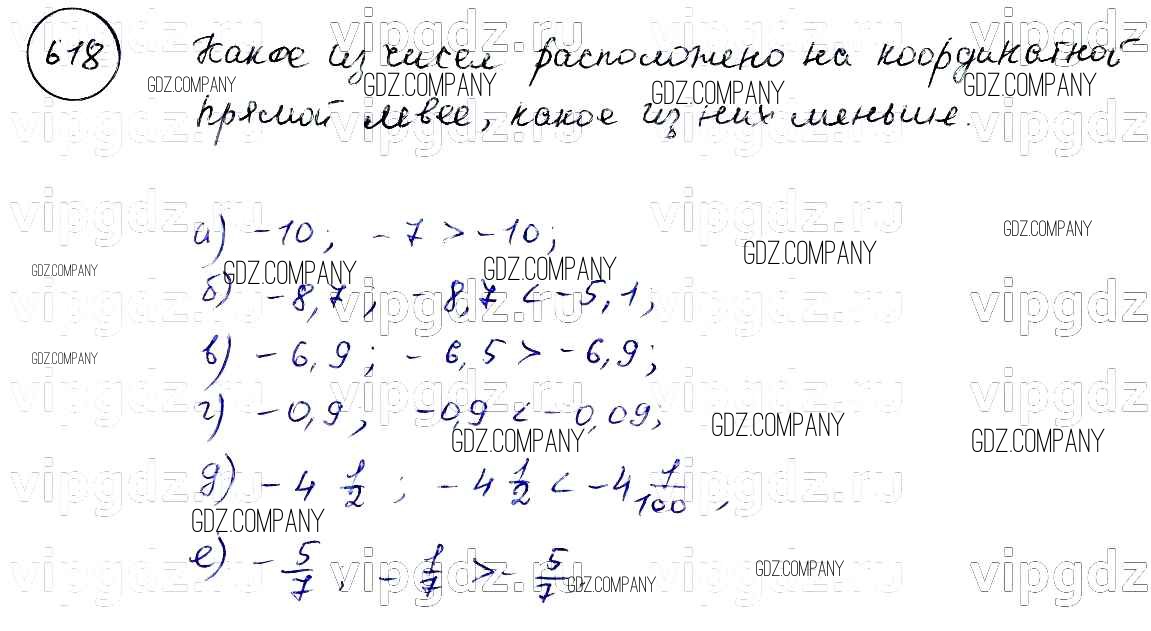 618 Какое из чисел расположено на координатной
прямой левее, какое из них меньше.
а) -10; -7 > -10;
б) -8,7; -8,7 < -5,1;
в) -6,9; -6,5 > -6,9;
г) -0,9, -0,9 < -0,09;
д) -4 1/2; -4 1/2 < -4 1/100,
е) -5/7, -1/7 > -5/7